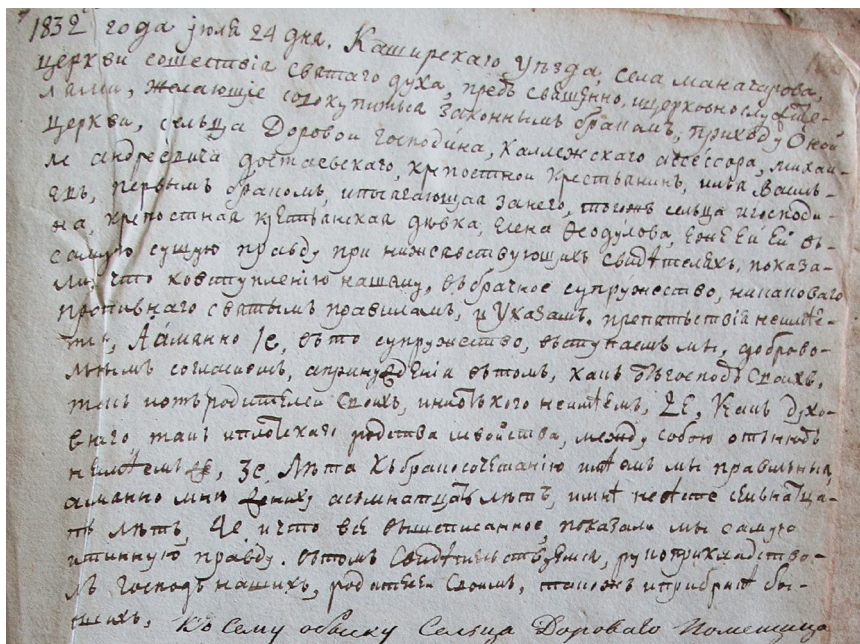 1832 года июля 24 дня. Каширскаго уѣзда, села маначарова,
церкви сошествія святаго духа, предъ священно, ицерковнослужите-
лями, желающіе совокупитьса законнымъ бракомъ, приходу Оной
церкви, сельца Доровои господина, каллежскаго ассессора, михаи-
ла андреевича достаевскаго, крѣпостной крестьянинъ, илья василь-
евъ, первымъ бракомъ, ипосягающая занего, тогожъ сельца игосподи-
на, крепостная крестьянская дѣвка, Елена Ѳедулова, Еже Ей Ей въ
самую сущую правду при нижеявствующихъ свидѣтеляхъ, показа-
ли, что ковступленію нашему, въбрачное супружество, никаковаго
противнаго святымъ правиламъ, и указамъ. препятьствія неимѣе-
тъ, Аимянно 1е, въто супружество, въступаемъ мы, доброво-
льнымъ согласиемъ, апринужденія вѣтомъ, какъ отъгосподъ своихъ,
такъ иотъродителей своихъ, иниотъкого неимѣемъ, 2е, какъ духо-
внаго такъ иплотскаго родства исвойства, между собою отънюдъ
неимѣемъ, 3е, Лѣта къбракосочетанію имѣемъ мы правильныя,
аимянно мнѣ жениху асьмнатцать лѣтъ, имнѣ невѣсте семьнатца-
ть лѣтъ, 4е ичто все вышеписанное, показали мы самую
истинную правду. вѣтомъ свидѣтельствуемся, рукоприкладство-
мъ господъ нашихъ, родителей своихъ, такожъ иприбракѣ бы-
вшихъ, Къ сему обыску сельца Дороваго помещица